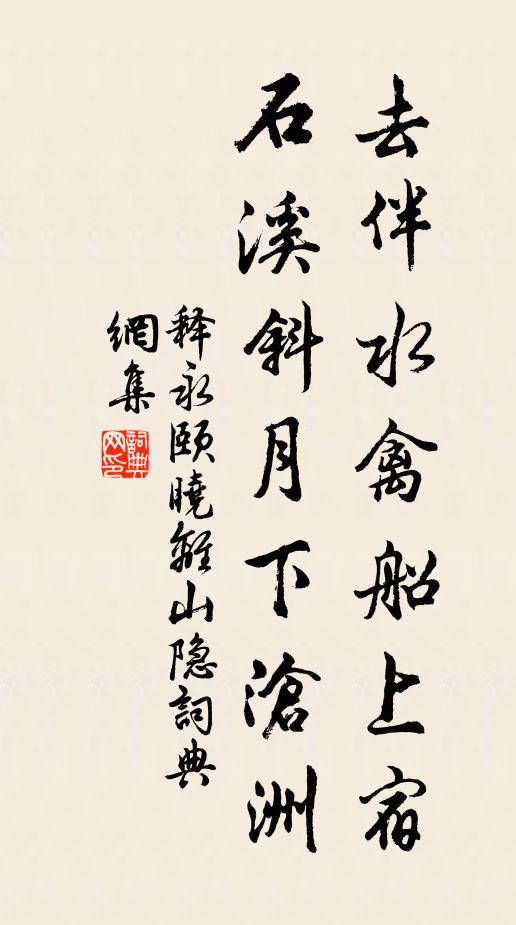 去伴水禽船上宿
石溪斜月下滄洲
释永颐曉離山隐詞典
網集
詞典網印